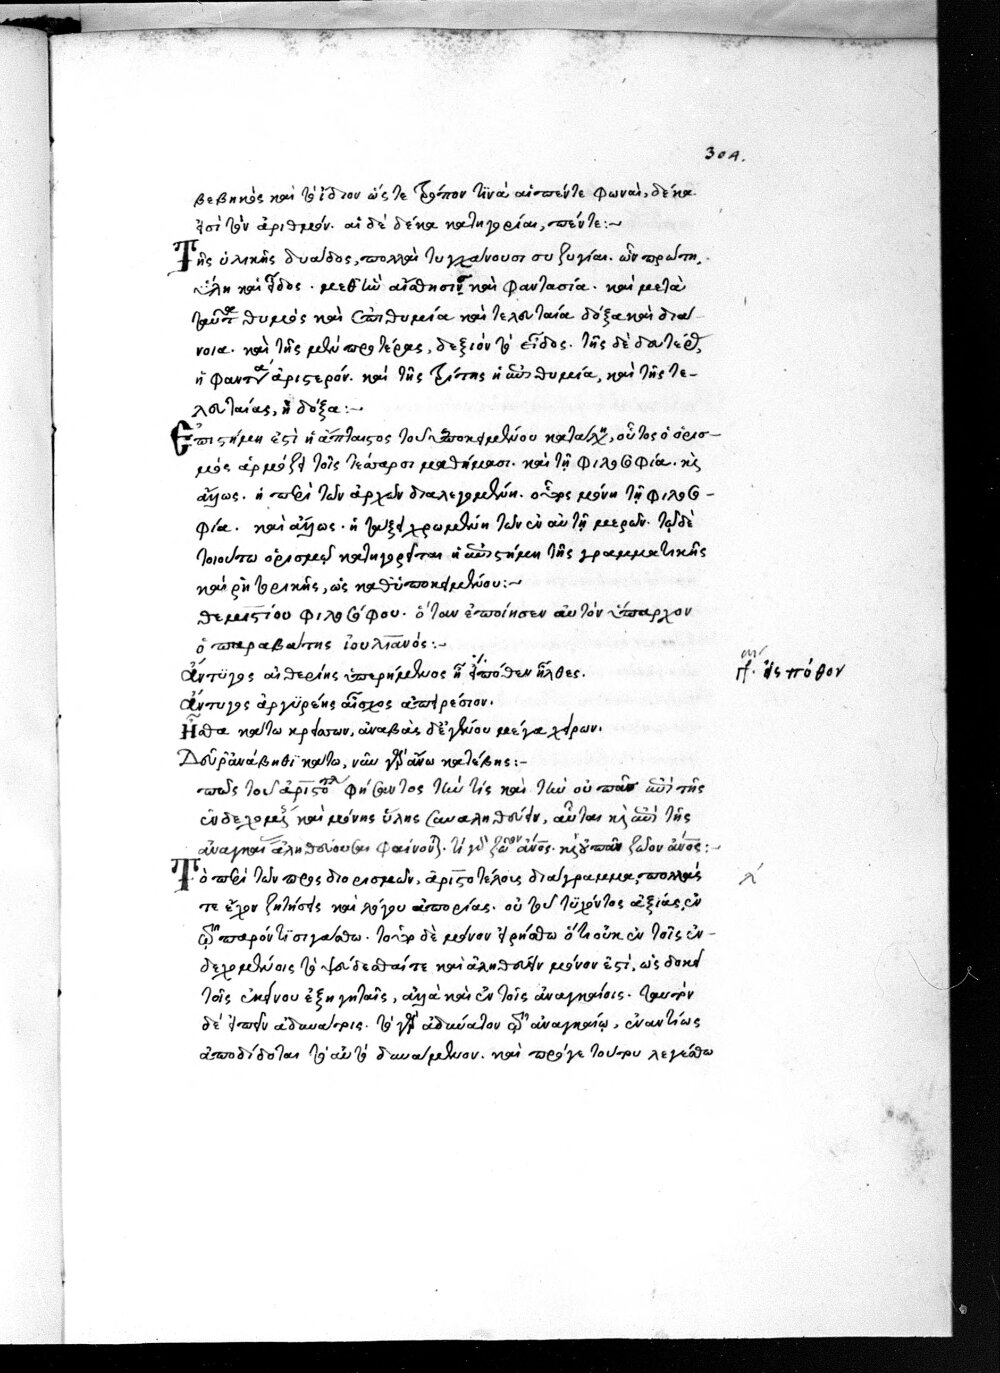 304.
βεβηκὸς καὶ τὸ ἴδιον ὥς τε τρόπον τινὰ αἱ πέντε φωναὶ, δέκα
εἰσὶ τὸν ἀριθμόν. αἱ δὲ δέκα κατηγορίαι, πέντε:~
Τῆς ὑλικῆς δυάδος, πολλαὶ τυγχάνουσι συζυγίαι. ὧν πρώτη,
ὕλη καὶ εἶδος. μεθ' ἣν αἴσθησις καὶ φαντασία. καὶ μετὰ
ταῦτα θυμὸς καὶ ἐπιθυμία καὶ τελευταία δόξα καὶ διά-
νοια. καὶ τῆς μὲν προτέρας, δεξιὸν τὸ εἶδος. τῆς δὲ δευτέρας,
ἡ φαντασία ἀριστερόν. καὶ τῆς τρίτης ἡ ἐπιθυμία, καὶ τῆς τε-
λευταίας, ἡ δόξα:~
Ἐπιστήμη ἐστὶ ἡ ἄπταιστος τοῦ ὑποκειμένου κατάληψις, οὗτος ὁ ὁρισ-
μὸς ἁρμόζει τοῖς τέσσαρσι μαθήμασι. καὶ τῇ φιλοσοφίᾳ. καὶ
ἄλλως. ἡ περὶ τῶν ἀρχῶν διαλεγομένη. ὅρος μόνη τῇ φιλοσο-
φίᾳ. καὶ ἄλλως. ἡ τάξει χρωμένη τῶν ἐν αὐτῇ μερῶν. τῷ δὲ
τοιούτῳ ὁρισμῷ κατηγορεῖται ἡ ἐπιστήμη τῆς γραμματικῆς
καὶ ῥητορικῆς, ὡς καθ' ὑποκειμένου:~
θεμιστίου φιλοσόφου. ὅταν ἐποίησεν αὐτὸν ὕπαρχον
ὁ παραβάτης ἰουλιανὸς:~
ἄντυγος αἰθερίης ὑπερήμενος ἢ εἰπόθεν ἦλθες.
ἄντυγος ἀργυρέης αἶσχος ἀπειρέσιον.
Ἦσθα κάτω κρείσσων, ἀναβὰς δ' ἐγένου μέγα χείρων.
Δεῦρ' ἀνάβηθι κάτω, νῦν γὰρ ἄνω κατέβης:~
πῶς τοῦ ἀριστοτέλους φήσαντος τὴν τίς καὶ τὴν οὐ πᾶς ἐπὶ τῆς
ἐνδεχομένης καὶ μόνης ὕλης συναληθεύειν, αὗται καὶ ἐπὶ τῆς
ἀναγκαίας ἀληθεύουσαι φαίνονται. τὶ γὰρ ζῷον ἄνος. καὶ οὐ πᾶν ζῷον ἄνος:~
Τὸ περὶ τῶν προσδιορισμῶν, ἀριστοτέλους διάγραμμα, πολλάς
τε ἔχον ζητήσεις καὶ λόγου ἀπορίας. οὐ τοῦ τυχόντος ἀξίας, ἐν
τῷ παρόντι σιγάσθω. τοῦτο δὲ μόνον εἰρήσθω ὅτι οὐκ ἐν τοῖς ἐν-
δεχομένοις τὸ ψεύδεσθαί τε καὶ ἀληθεύειν μόνον ἐστὶ, ὡς δοκεῖ
τοῖς ἐκείνου ἐξηγηταῖς, ἀλλὰ καὶ ἐν τοῖς ἀναγκαίοις. ταυτὸν
δὲ εἰπεῖν ἀδυνάτοις. τὸ γὰρ ἀδύνατον τῷ ἀναγκαίῳ, ἐναντίως
ἀποδίδοται τὸ αὐτὸ δυνάμενον. καὶ πρός γε τούτου λεγέσθω
εἰς πόθον